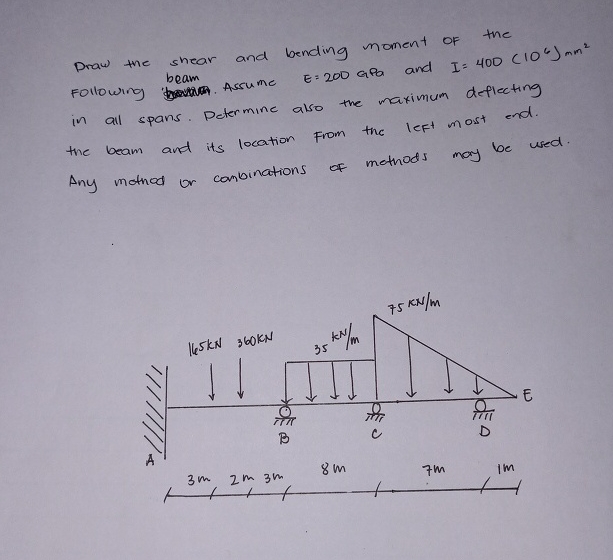 Draw the shear and bending moment of the
Following beam. Assume E = 200 GPa and I = 400 (10⁶) mm²
in all spans. Determine also the maximum deflecting
the beam and its location from the left most end.
Any method or combinations of methods may be used.
75 KN/m
165KN 360KN 35 KN/m
A B C D E
3m 2m 3m 8m 7m 1m